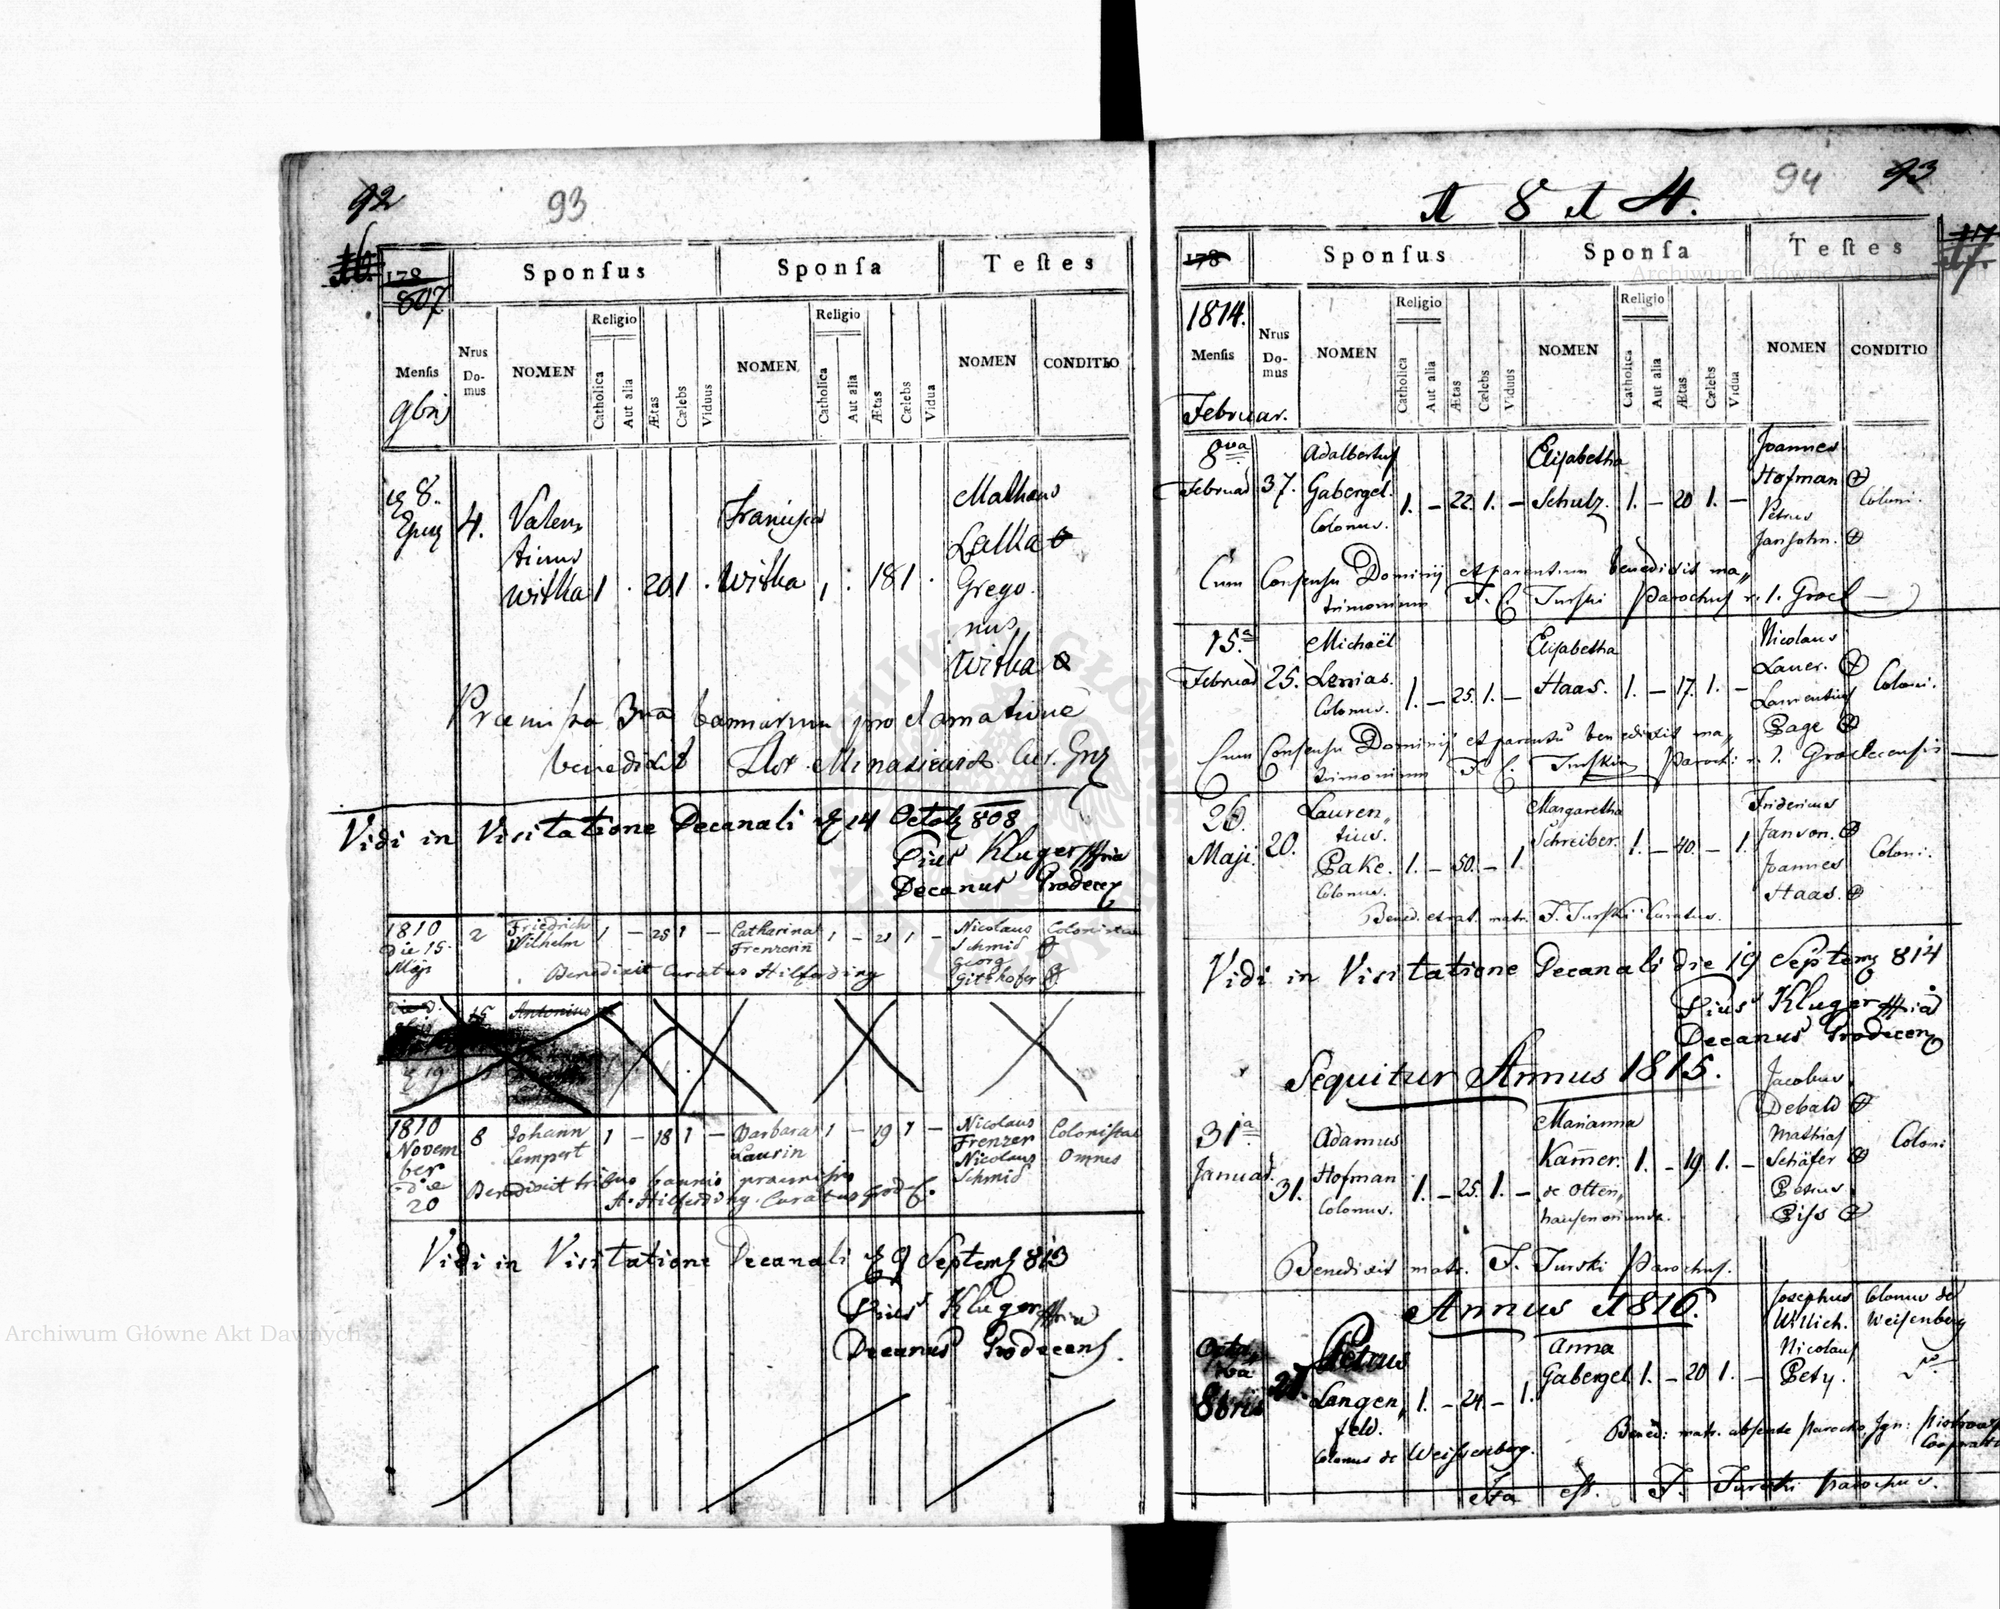 92 93
178 Sponsus Sponsa Testes
807
Religio Religio
Mensis Nrus Domus NOMEN Catholica Aut alia Ætas Cælebs Viduus NOMEN Catholica Aut alia Ætas Cælebs Vidua NOMEN CONDITIO
9bris
8. 4. Valen
tinus
Witka 1 . 20 1 . Francisca Witka 1 . 18 1 .
Grego
rius
Witka
Præmissa 3na bannorum proclamatione
benedixit
Vidi in Visitatione Decanali 14 Octob 808
Pius Kluger mpria
Decanus Grodecen
1810 2 Friedrich 1 – 25 1 – Catharina 1 – 21 1 – Nicolaus Colonistae
Die 15 Wilhelm Frenzerin Schmid
Maji Benedixit Curatus Hilferding Georg
Gitzhofer
15 Antonius
19
1810 8 Johann 1 – 18 1 – Barbara 1 – 19 1 – Nicolaus Colonistae
Novem Lempert Laurin Frenzer Omnes
ber Nicolaus
Die Benedixit tribus bannis præmissis Schmid
20 A. Hilferding Curatus
Vidi in Visitatione Decanali 9 Septemb 813
Pius Kluger mpria
Decanus Grodecens.
1814. 94 93
178 Sponsus Sponsa Testes
1814.
Religio Religio
Mensis Nrus Domus NOMEN Catholica Aut alia Ætas Cælebs Viduus NOMEN Catholica Aut alia Ætas Cælebs Vidua NOMEN CONDITIO
Februar.
8va Adalbertus Elisabetha Joannes
Februar 37. Gabergel. 1. – 22. 1. – Schulz. 1. – 20 1. – Hofman Coloni.
Colonus. Petrus
Jansohn.
Cum Consensu Dominij et parentum benedixit ma„
trimonium F. C. Turski Parochus r. l. Groel
15.a Michaël Elisabetha Nicolaus
Februar 25. Lenias. 1. – 25. 1. – Haas. 1. – 17. 1. – Lauer. Coloni.
Colonus. Laurentius
Page
Cum Consensu Dominij et parentu benedixit ma„
trimonium F. C. Turski Paroch: r. l. Grodecensis
26. Lauren„ Margaretha Fridericus
Maji. 20. tius. Schreiber. 1. – 40. – 1. Janson.
Pake. 1. – 50. – 1. Joannes Coloni.
Colonus. Haas.
Bened. et rat. matr. F. Turski Curatus.
Vidi in Visitatione Decanali die 19 Septemb 814
Pius Kluger mpria
Decanus Grodecen
Sequitur Annus 1815.
Jacobus
Debald
31a Adamus Marianna Mathias
Januar. 31. Hofman 1. – 25. 1. – Kam̄er. 1. – 19. 1. – Schäfer Coloni
Colonus. de Otten„ Petrus
hausen oriunda. Piss
Benedixit matr. F. Turski Parochus.
Annus 1816.
Josephus Colonus de
Willich. Weisenberg
Octa Petrus Anna Nicolaus
va 21. Langen„ 1. – 24 – 1. Gabergel 1. – 20 1. – Pety.
8bris feld.
Colonus de Weissenberg. Bened: matr. absente Parocho, Ign:
Ita est. F. Turski Parochus.
Archiwum Główne Akt Dawnych